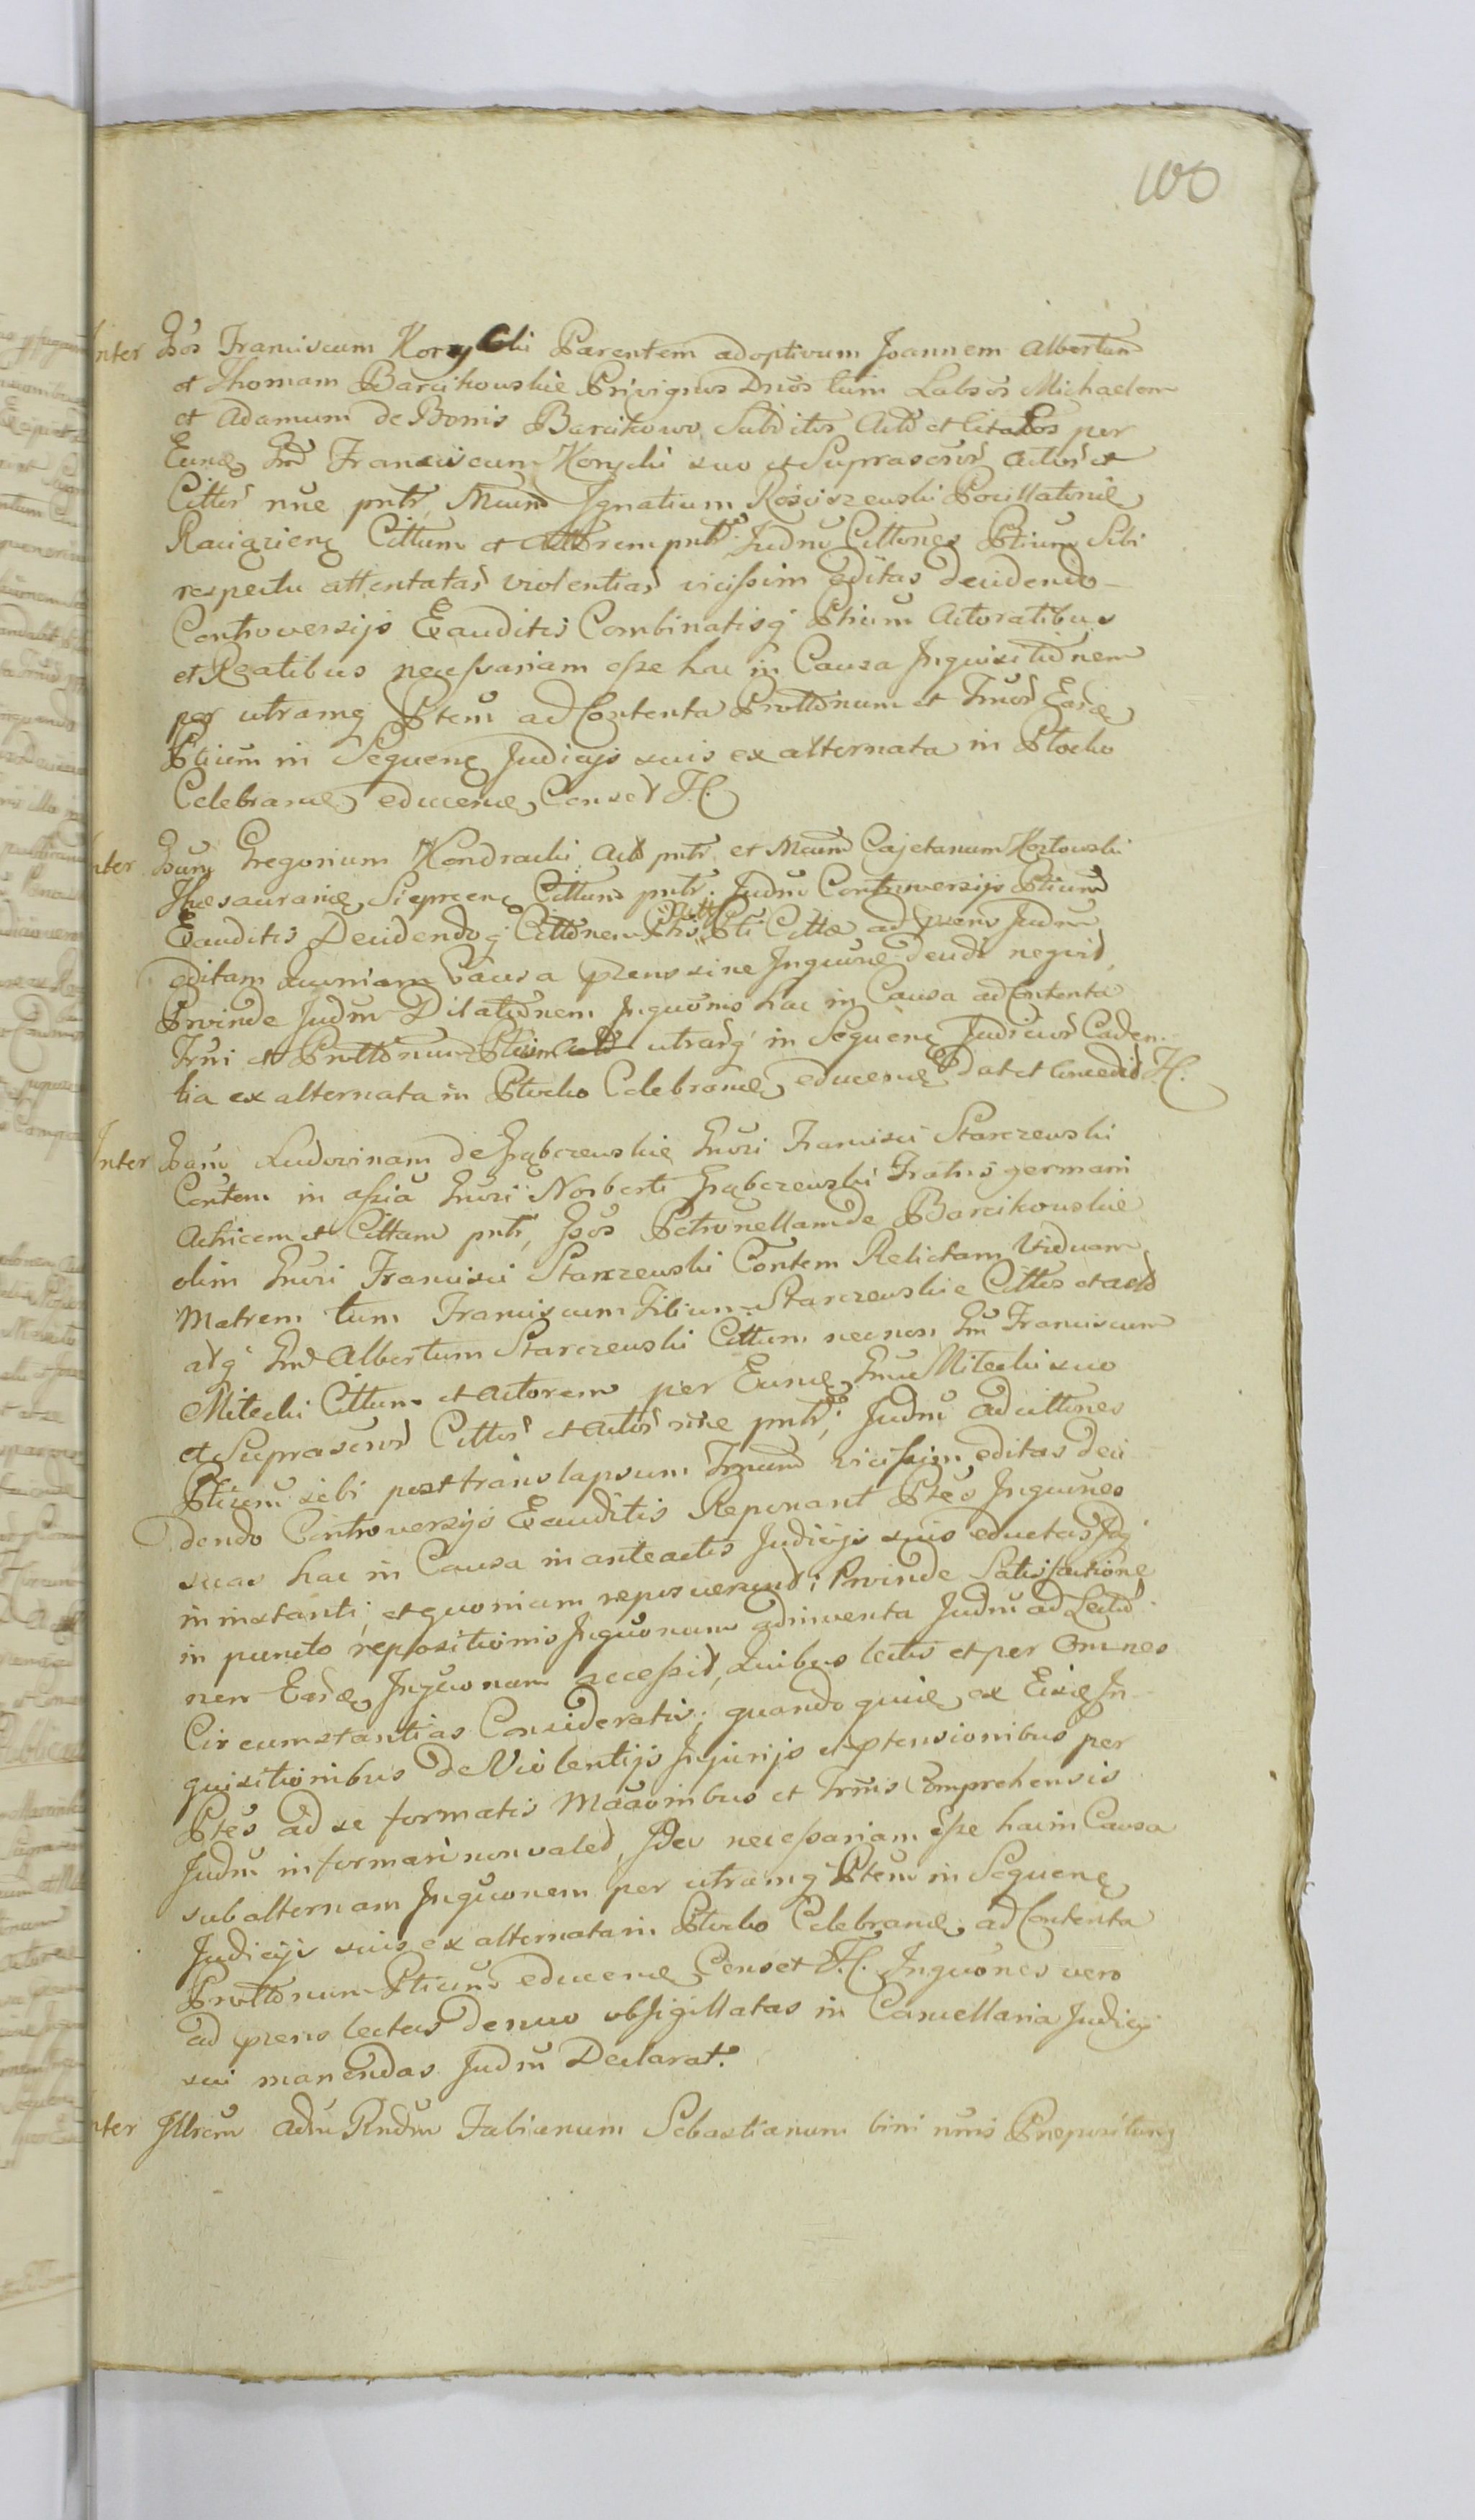 100
Inter Gsos Franciscum Korycki Parentem adoptivum Joannem Albertum
et Thomam Barcikowskie Privignos Dnos tum Labsos Michaelem
et Adamum de Bonis Barcikowo Subditos Act et Citatos per
Eund Gnd Franciscum Korycki suo et Suprascror Actor et
Cittor nne pntr, Mcum Ignatium Rosciszewski Pocillatorid
Raciązieng Cittum et Actorem pntr Judm Cittones Ptium Sibi
respectu attentatas violentias vicissim editas decidendo
Controversijs Exauditis Combinatisq Ptium Actoratibus
et Reatibus necessariam esse hac in Causa Inquisitionem
per utramq Ptem ad Contenta Prottonum et Trmor Eard
Ptium in Sequeng Judicijs suis ex alternata in Plocko
Celebrand educend Censet H.
Inter Gsum Gregorium Kendracki Act pntr et Mcum Cajetanum Kozlowski
Thesauranid Siepreeng Cittum pntr. Judm Controversijs Ptium
Exauditis Decidendoq Cittonem Pti Citte ad prens Judm
editam quoniam Causa prens sine Inquone decidi nequit,
Proinde Judm Dilationem Inquonis hac in Causa ad Contenta
Trmi et Prottonum Ptium utrasq in Sequeng Judicior Caden-
tia ex alternata in Plocko Celebrand educend Dat et Concedit H.
Inter Gsam Ludovinam de Grąbczewskie Gnsi Francisci Starczewski
Contem in assia Gnsi Norberti Grąbczewski Fratris germani
Actricem et Cittam pntr, Gsos Petronellam de Barcikowskie
olim Gnsi Francisci Starczewski Contem Relictam Viduam
Matrem tum Franciscum Filium Starczewskie Cittos et act
atq Gnd Albertum Starczewski Cittum necnon Gnd Franciscum
Mitecki Cittum et Actorem per Eund Gnum Mitecki suo
et Suprascror Cittor et Actor nne pntr; Judm ad cittones
Ptium sibi post translapsum Trmum vicissim editas deci
dendo Controversijs Exauditis Reponant Ptes Inquones
suas hac in Causa in anteactis Judicijs suis eductas Idq
in instanti; et quoniam reposuerunt; Proinde Satisfactione
in puncto repositionis Inquonum adinventa Judm ad Lectio
nem Eard Inquonum accessit, Quibus lectis et per Omnes
Circumstantias Consideratis; quandoquid ex Eisd In-
quisitionibus de Violentijs Injurijs et ptensionibus per
Ptes ad se formatis Maaonibus et Trmis Comprehensis
Judm informari non valet, Ideo necessariam esse hac in Causa
subalternam Inquonem per utramq Ptem in Sequeng
Judicijs suis ex alternata in Plocko Celebrand ad Contenta
Prottonum Ptium educend Censet H. Inquones vero
ad prens lectas denuo obsigillatas in Cancellaria Judicij
sui manendas Judm Declarat.
Inter Illrem adm Rndum Fabianum Sebastianum bini nmis Prepositum